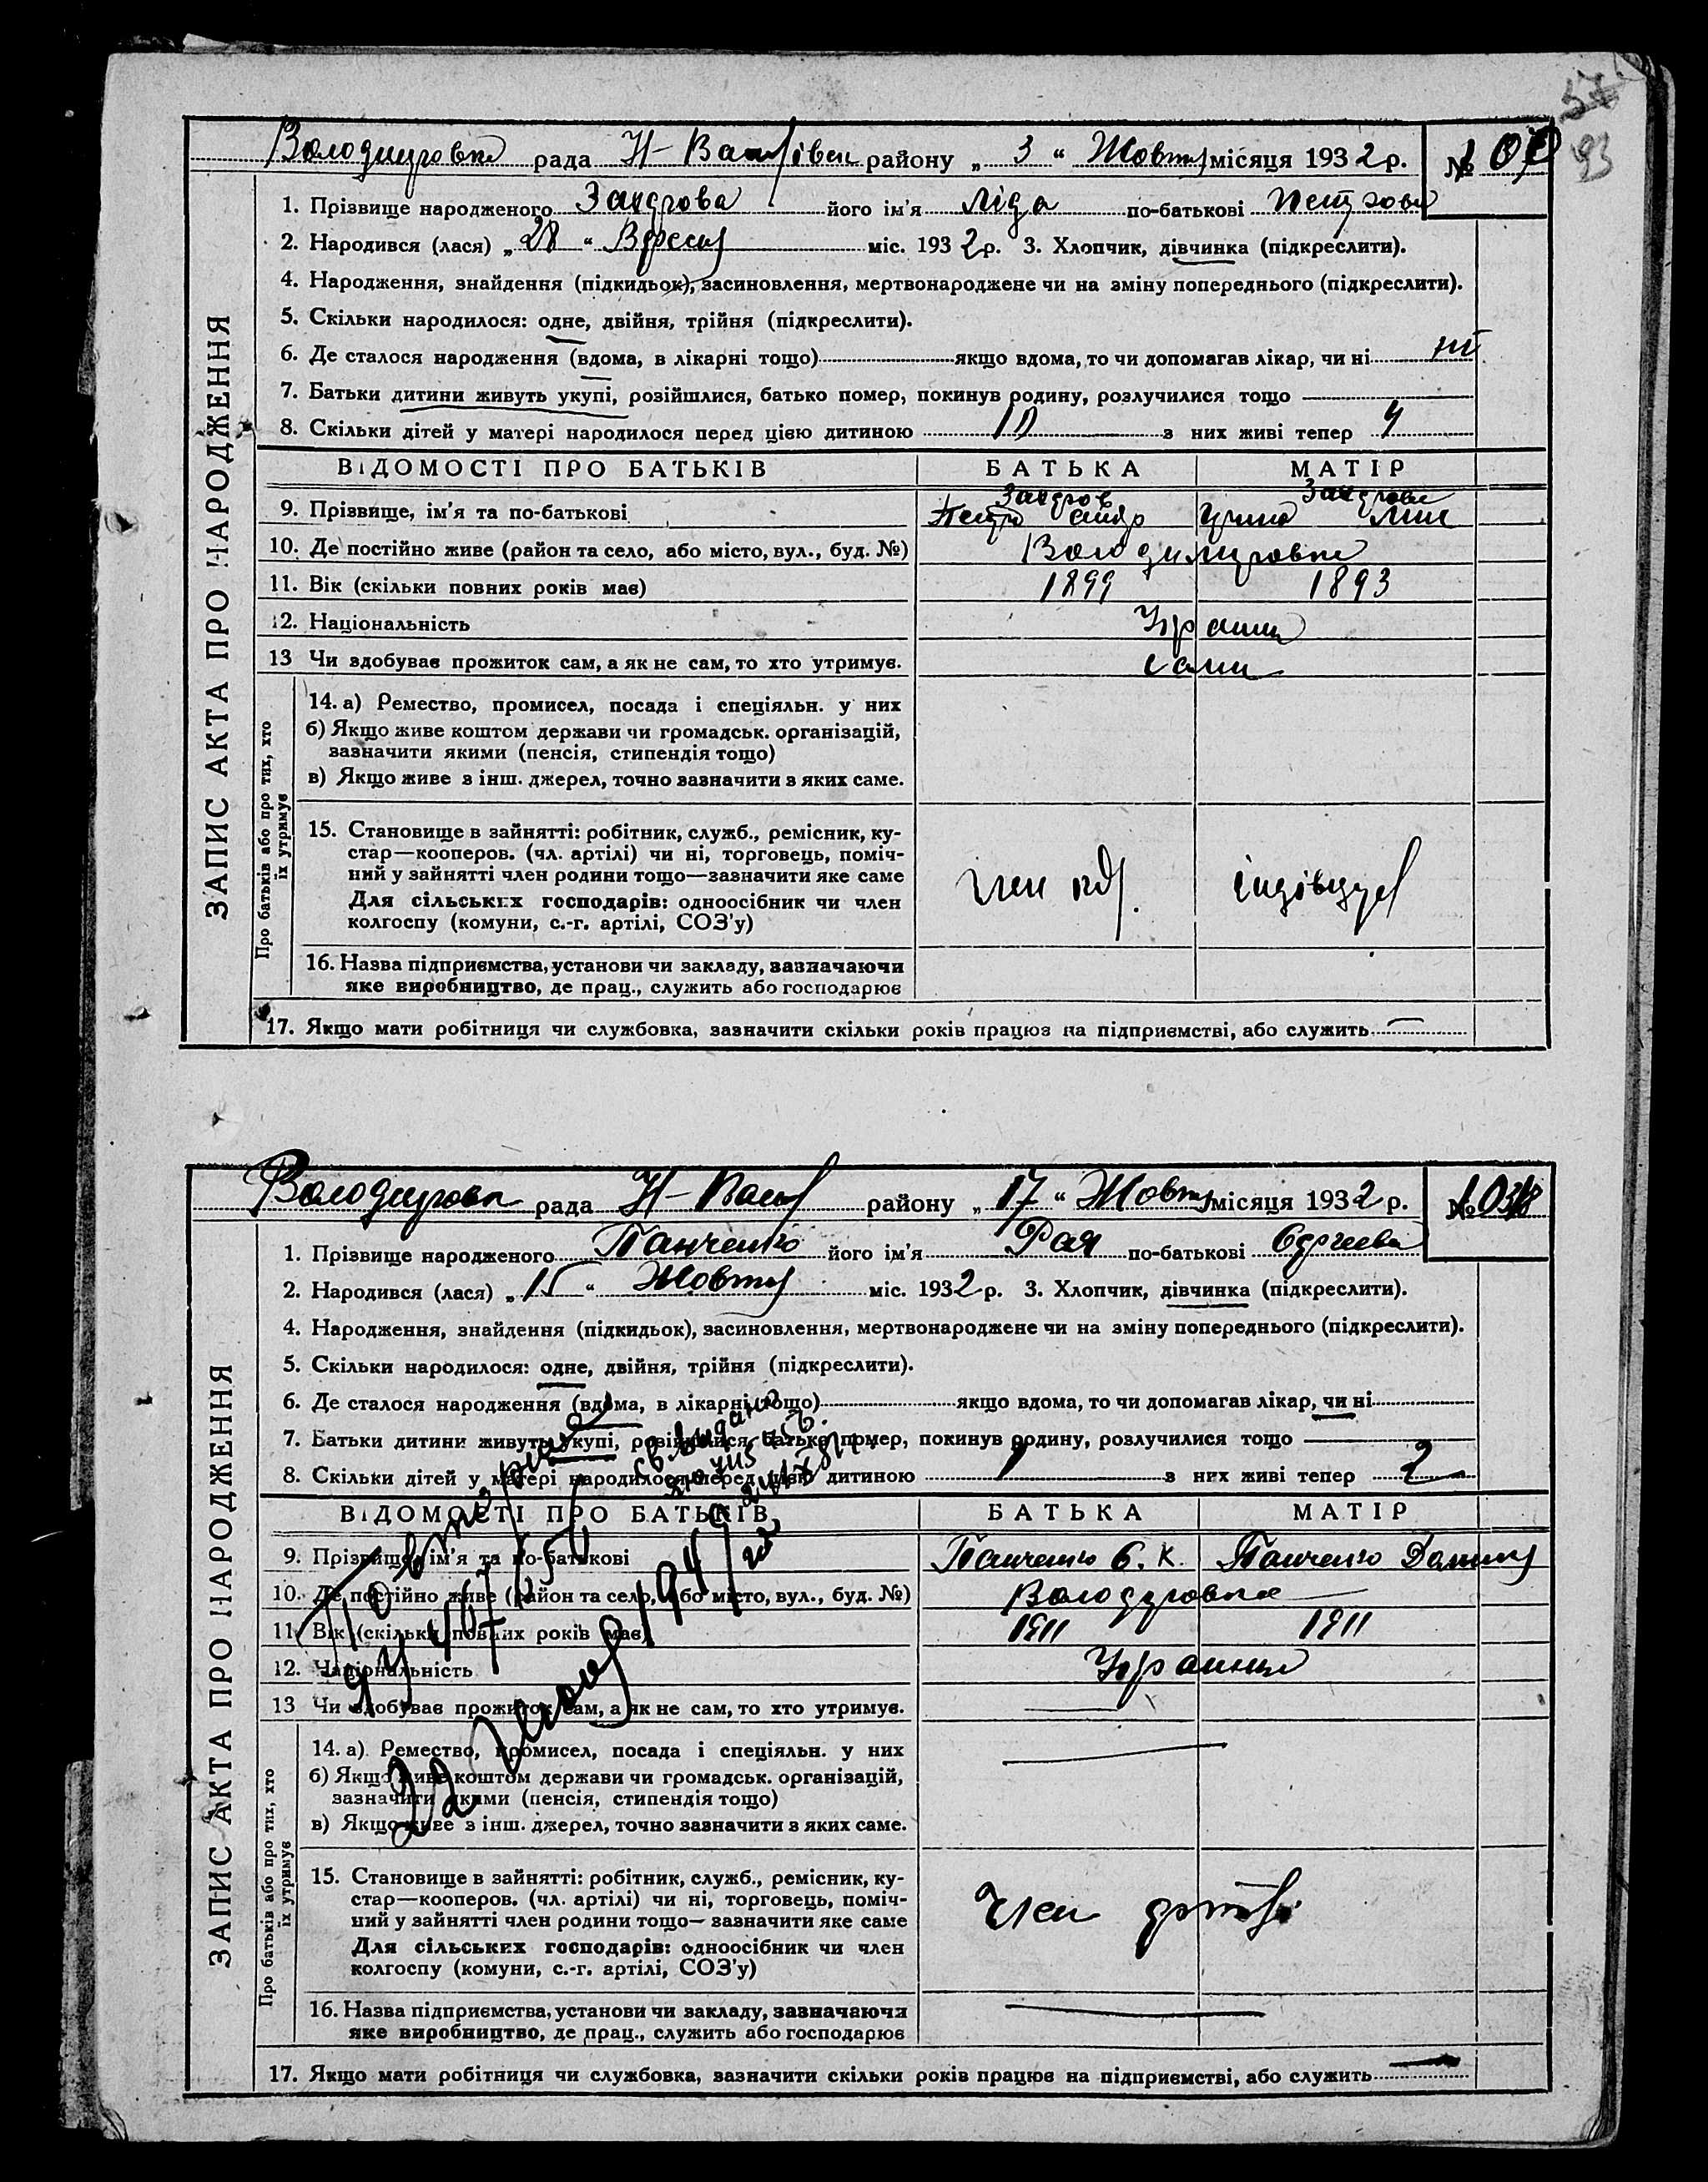 57
93
рада Н- район у „ 3 “ Жовтн місяця 1932 р. №
1. Прізвище народженого Зандрова його ім'я Ліда по-батькові Петрова
2. Народився (лася) „ 28 “ Вересн міс. 1932 р. 3. Хлопчик, дівчинка (підкреслити).
4. Народження, знайдення (підкидьок), засиновлення, мертвонароджене чи на зміну попереднього (підкреслити).
5. Скільки народилося: одне, двійня, трійня (підкреслити).
6. Де сталося народження (вдома, в лікарні тощо) якщо вдома, то чи допомагав лікар, чи ні ні
7. Батьки дитини живуть укупі, розійшлися, батько помер, покинув родину, розлучилися тощо
8. Скільки дітей у матері народилося перед цією дитиною 10 з них живі тепер 4
ЗАПИС АКТА ПРО НАРОДЖЕННЯ
ВІДОМОСТІ ПРО БАТЬКІВ БАТЬКА МАТІР
Зандров Зандрова
9. Прізвище, ім'я та по-батькові Петро
10. Де постійно живе (район та село, або місто, вул., буд. №) Володимировка
11. Вік (скільки повних років має) 1899 1893
12. Національність
13 Чи здобуває прожиток сам, а як не сам, то хто утримує. сами
Про батьків або про тих, хто їх утримує
14. а) Ремество, промисел, посада і спеціяльн. у них
б) Якщо живе коштом держави чи громадськ. організацій,
зазначити якими (пенсія, стипендія тощо)
в) Якщо живе з інш. джерел, точно зазначити з яких саме.
15. Становище в зайнятті: робітник, служб., ремісник, ку-
стар—кооперов. (чл. артілі) чи ні, торговець, поміч-
ний у зайнятті член родини тощо—зазначити яке саме
Для сільських господарів: одноосібник чи член
колгоспу (комуни, с.-г. артілі, СОЗ'у)
член індівідуал
16. Назва підприємства, установи чи закладу, зазначаючи
яке виробництво, де прац., служить або господарює
17. Якщо мати робітниця чи службовка, зазначити скільки років працює на підприємстві, або служить
рада Н- району „ 17 “ Жовтн місяця 1932 р. №
1. Прізвище народженого Панченко його ім'я Рая по-батькові Сергеева
2. Народився (лася) „ 15 “ Жовтн міс. 1932 р. 3. Хлопчик, дівчинка (підкреслити).
4. Народження, знайдення (підкидьок), засиновлення, мертвонароджене чи на зміну попереднього (підкреслити).
5. Скільки народилося: одне, двійня, трійня (підкреслити).
6. Де сталося народження (вдома, в лікарні тощо) якщо вдома, то чи допомагав лікар, чи ні
7. Батьки дитини живуть укупі, розійшлися, батько помер, покинув родину, розлучилися тощо
8. Скільки дітей у матері народилося перед цією дитиною 1 з них живі тепер 2
ЗАПИС АКТА ПРО НАРОДЖЕННЯ
ВІДОМОСТІ ПРО БАТЬКІВ БАТЬКА МАТІР
9. Прізвище, ім'я та по-батькові Панченко С. К. Панченко
10. Де постійно живе (район та село, або місто, вул., буд. №)
11. Вік (скільки повних років має) 1911 1911
12. Національність
13 Чи здобуває прожиток сам, а як не сам, то хто утримує.
Про батьків або про тих, хто їх утримує
14. а) Ремество, промисел, посада і спеціяльн. у них
б) Якщо живе коштом держави чи громадськ. організацій,
зазначити якими (пенсія, стипендія тощо)
в) Якщо живе з інш. джерел, точно зазначити з яких саме.
15. Становище в зайнятті: робітник, служб., ремісник, ку-
стар—кооперов. (чл. артілі) чи ні, торговець, поміч-
ний у зайнятті член родини тощо—зазначити яке саме
Для сільських господарів: одноосібник чи член
колгоспу (комуни, с.-г. артілі, СОЗ'у)
член
16. Назва підприємства, установи чи закладу, зазначаючи
яке виробництво, де прац., служить або господарює
17. Якщо мати робітниця чи службовка, зазначити скільки років працює на підприємстві, або служить
Повторна
22 1949